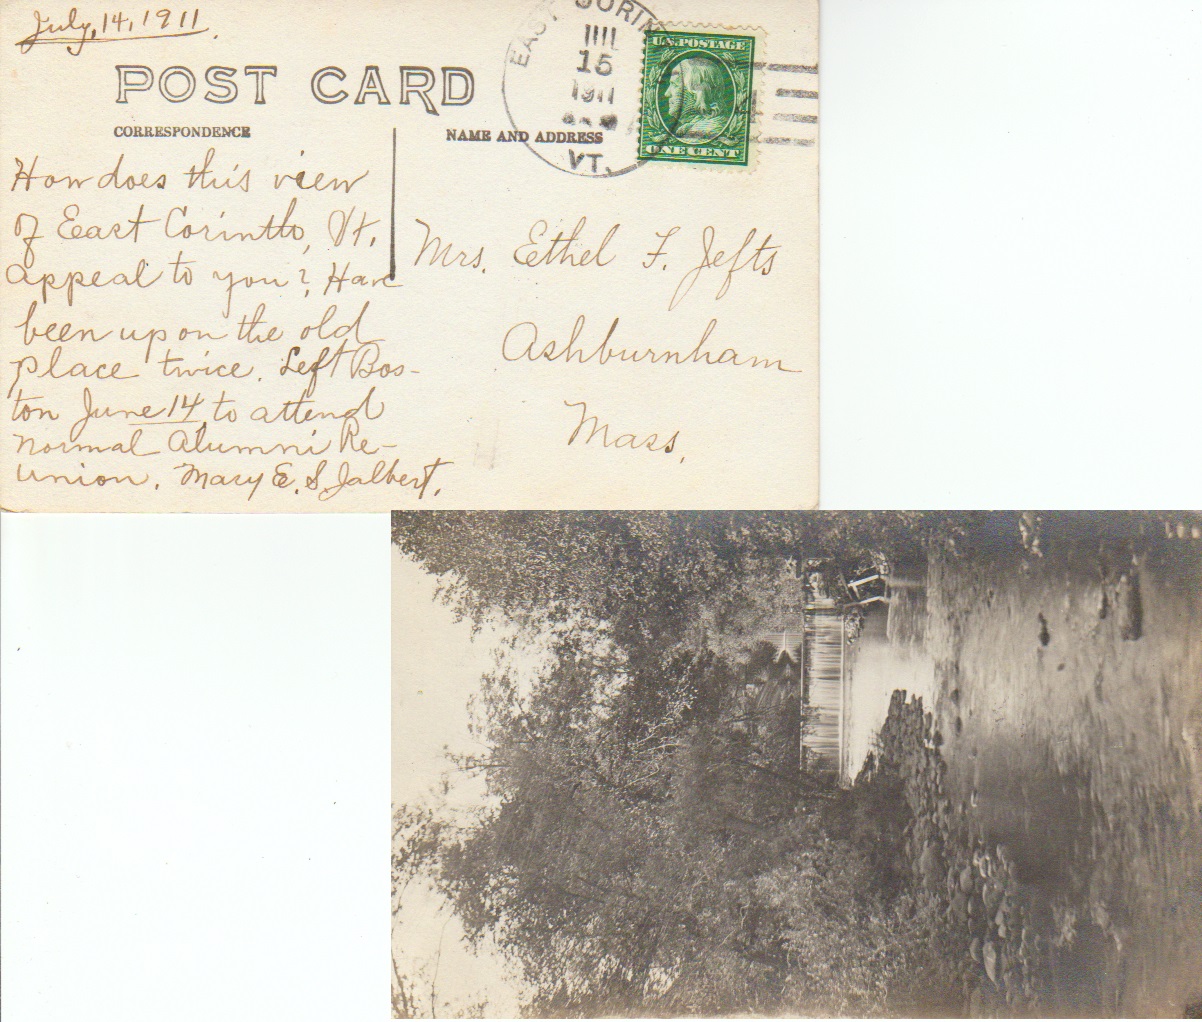 July, 14, 1911.
POST CARD
CORRESPONDENCE
NAME AND ADDRESS
EAST CORIN
15
1911
VT.
U.S. POSTAGE
ONE CENT
How does this view
of East Corinth, Vt.
appeal to you? Have
been upon the old
place twice. Left Bos-
ton June 14, to attend
normal Alumni Re-
union. Mary E. S. Jalbert.
Mrs. Ethel F. Jefts
Ashburnham
Mass.